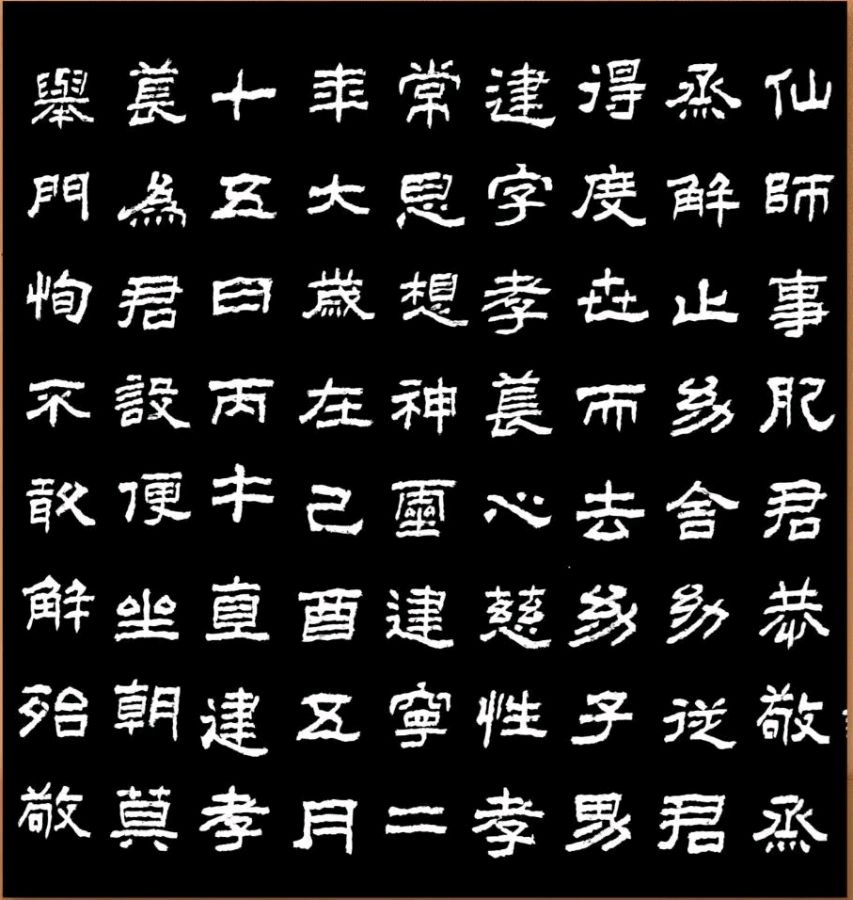 仙師事肥君恭敬烝
烝解止幼舍幼從君
得度世而去幼子男
建字孝萇心慈性孝
常思想神靈建寧二
年大歲在己酉五月
十五日丙午直建孝
萇為君設便坐朝莫
舉門恂不敢解殆敬